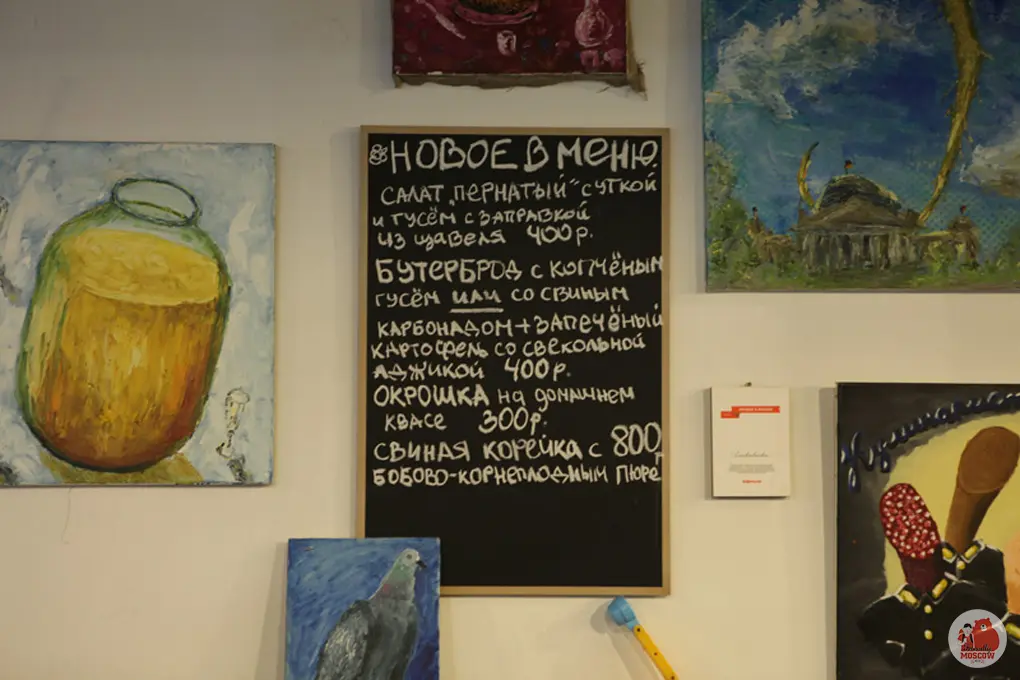 НОВОЕ В МЕНЮ.
САЛАТ „ПЕРНАТЫЙ" С УТКОЙ
И ГУСЁМ С ЗАПРАВКОЙ
ИЗ ЩАВЕЛЯ 400 р.
БУТЕРБРОД С КОПЧЁНЫМ
ГУСЁМ ИЛИ СО СВИНЫМ
КАРБОНАДОМ + ЗАПЕЧЁНЫЙ
КАРТОФЕЛЬ СО СВЕКОЛЬНОЙ
АДЖИКОЙ 400 р.
ОКРОШКА НА ДОМАШНЕМ
КВАСЕ 300 р.
СВИНАЯ КОРЕЙКА С 800 р
БОБОВО-КОРНЕПЛОДНЫМ ПЮРЕ
MOSCOW